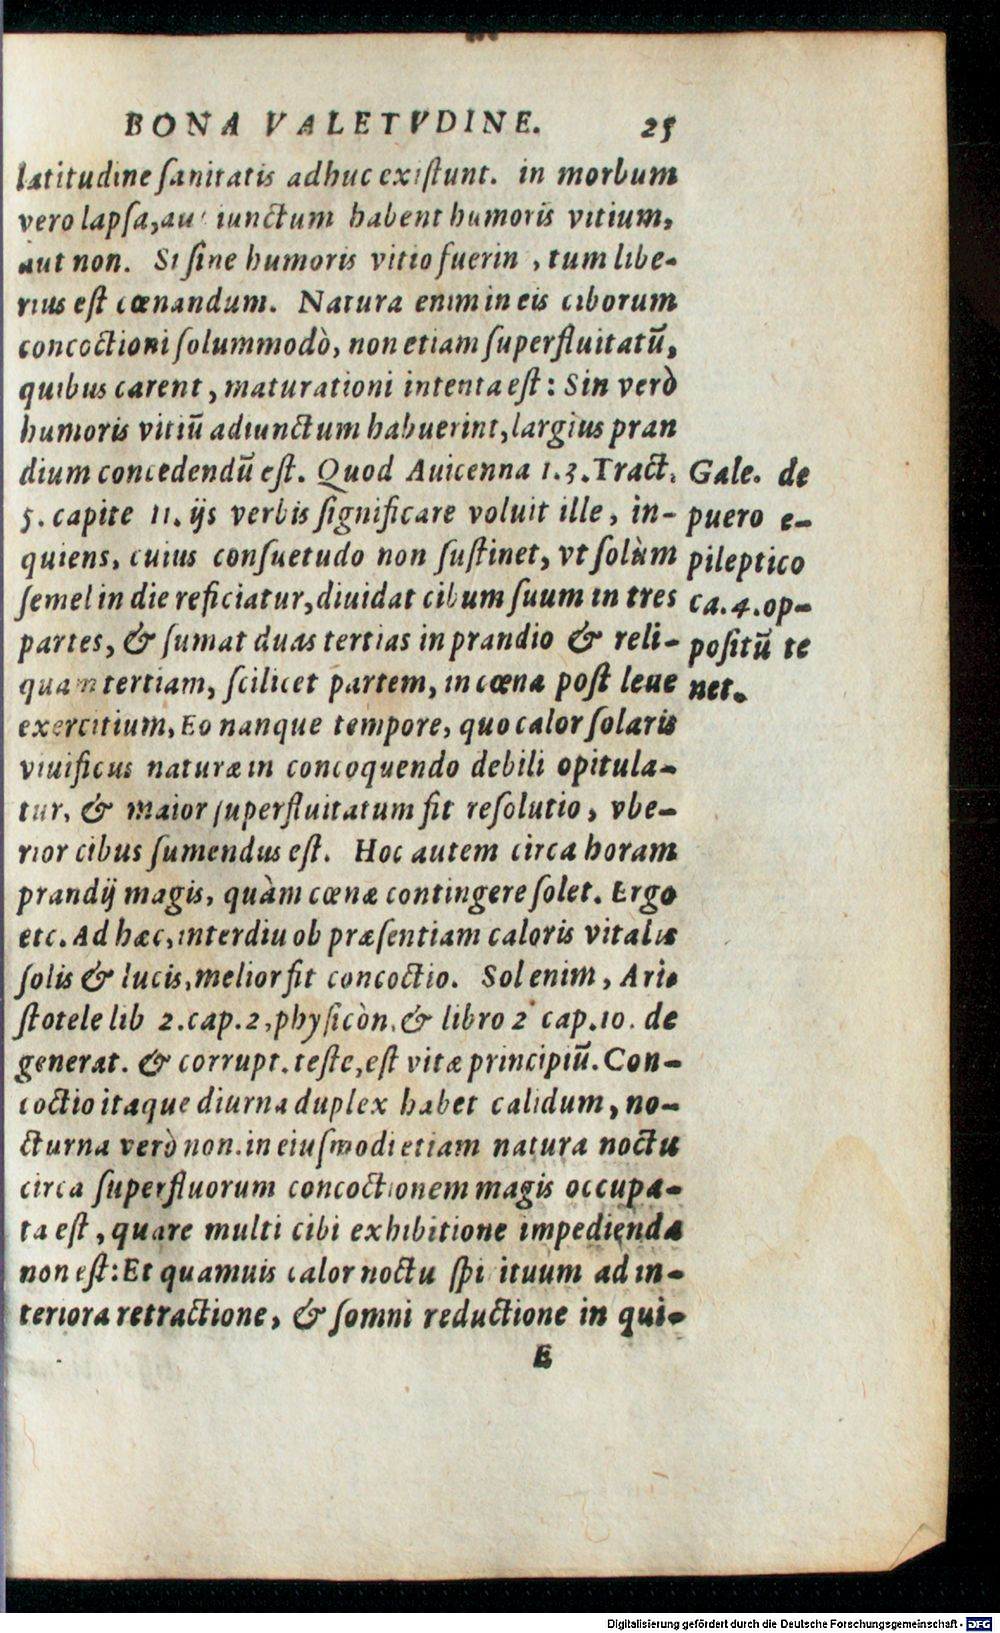 BONA VALETVDINE. 25
latitudine sanitatis adhuc existunt. in morbum
vero lapsa, aut iunctum habent humoris vitium,
aut non. Si sine humoris vitio fuerin , tum libe-
rius est cœnandum. Natura enim in eis ciborum
concoctioni solummodò, non etiam superfluitatū,
quibus carent, maturationi intenta est: Sin verò
humoris vitiū adiunctum habuerint, largius pran
dium concedendū est. Quod Auicenna 1.3. Tract.
5. capite 11. ijs verbis significare voluit ille, in-
quiens, cuius consuetudo non sustinet, vt solùm
semel in die reficiatur, diuidat cibum suum in tres
partes, & sumat duas tertias in prandio & reli-
quam tertiam, scilicet partem, in cœna post leue
exercitium, Eo nanque tempore, quo calor solaris
viuificus naturæ in concoquendo debili opitula-
tur, & maior superfluitatum fit resolutio, vbe-
rior cibus sumendus est. Hoc autem circa horam
prandij magis, quàm cœnæ contingere solet. Ergo
etc. Ad hæc, interdiu ob præsentiam caloris vitalis
solis & lucis, melior fit concoctio. Sol enim, Ari-
stotele lib 2. cap. 2, physicòn, & libro 2 cap. 10. de
generat. & corrupt. teste, est vitæ principiū. Con-
coctio itaque diurna duplex habet calidum, no-
cturna verò non. in eiusmodi etiam natura noctu
circa superfluorum concoctionem magis occupa-
ta est, quare multi cibi exhibitione impedienda
non est: Et quamuis calor noctu spi ituum ad in-
teriora retractione, & somni reductione in qui-
E
Gale. de
puero e-
pileptico
ca. 4. op-
positū te
net.
Digitalisierung gefördert durch die Deutsche Forschungsgemeinschaft - DFG